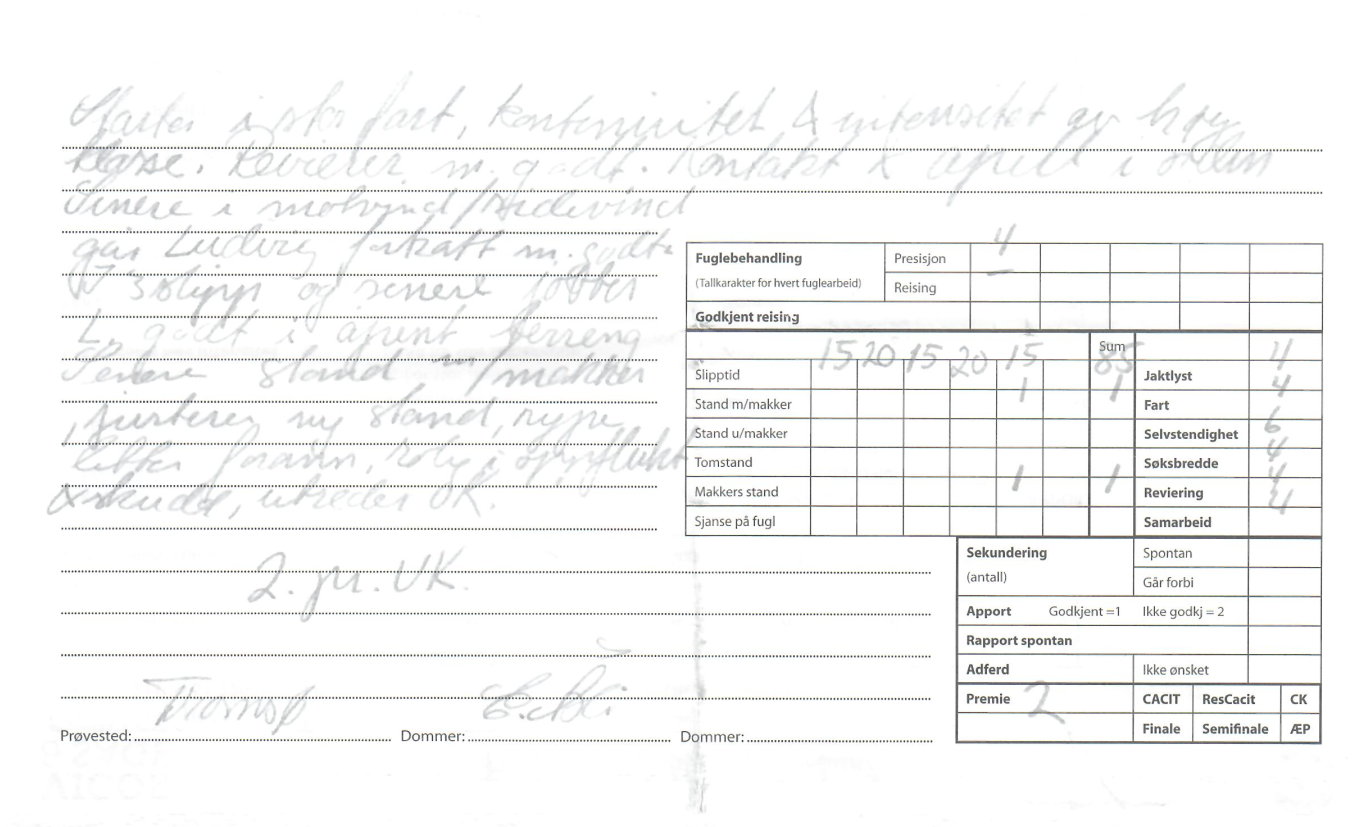 Starter i stor fart, kontinuitet & intensitet av høy
klasse. Revierer m. godt. Kontakt & april i orden
Senere i motvind/sidevind
går Ludvig fortsatt m. godt.
I 3 slipp og senere jobber
L. godt i åpent terreng
Senere stand m/makker
, justerer ny stand, rype
letter foran, rolig i oppflukt
& skudd, utreder OK.
2. pr. UK.
Tromsø
Prøvested: Dommer: Dommer:
Fuglebehandling Presisjon 4
(Tallkarakter for hvert fuglearbeid) Reising –
Godkjent reising
Sum
Slipptid 15 20 15 20 15 85 Jaktlyst 4
Stand m/makker 1 1 Fart 4
Stand u/makker Selvstendighet 6
Tomstand Søksbredde 4
Makkers stand 1 1 Reviering 4
Sjanse på fugl Samarbeid 4
Sekundering Spontan
(antall) Går forbi
Apport Godkjent =1 Ikke godkj = 2
Rapport spontan
Adferd Ikke ønsket
Premie 2 CACIT ResCacit CK
Finale Semifinale ÆP